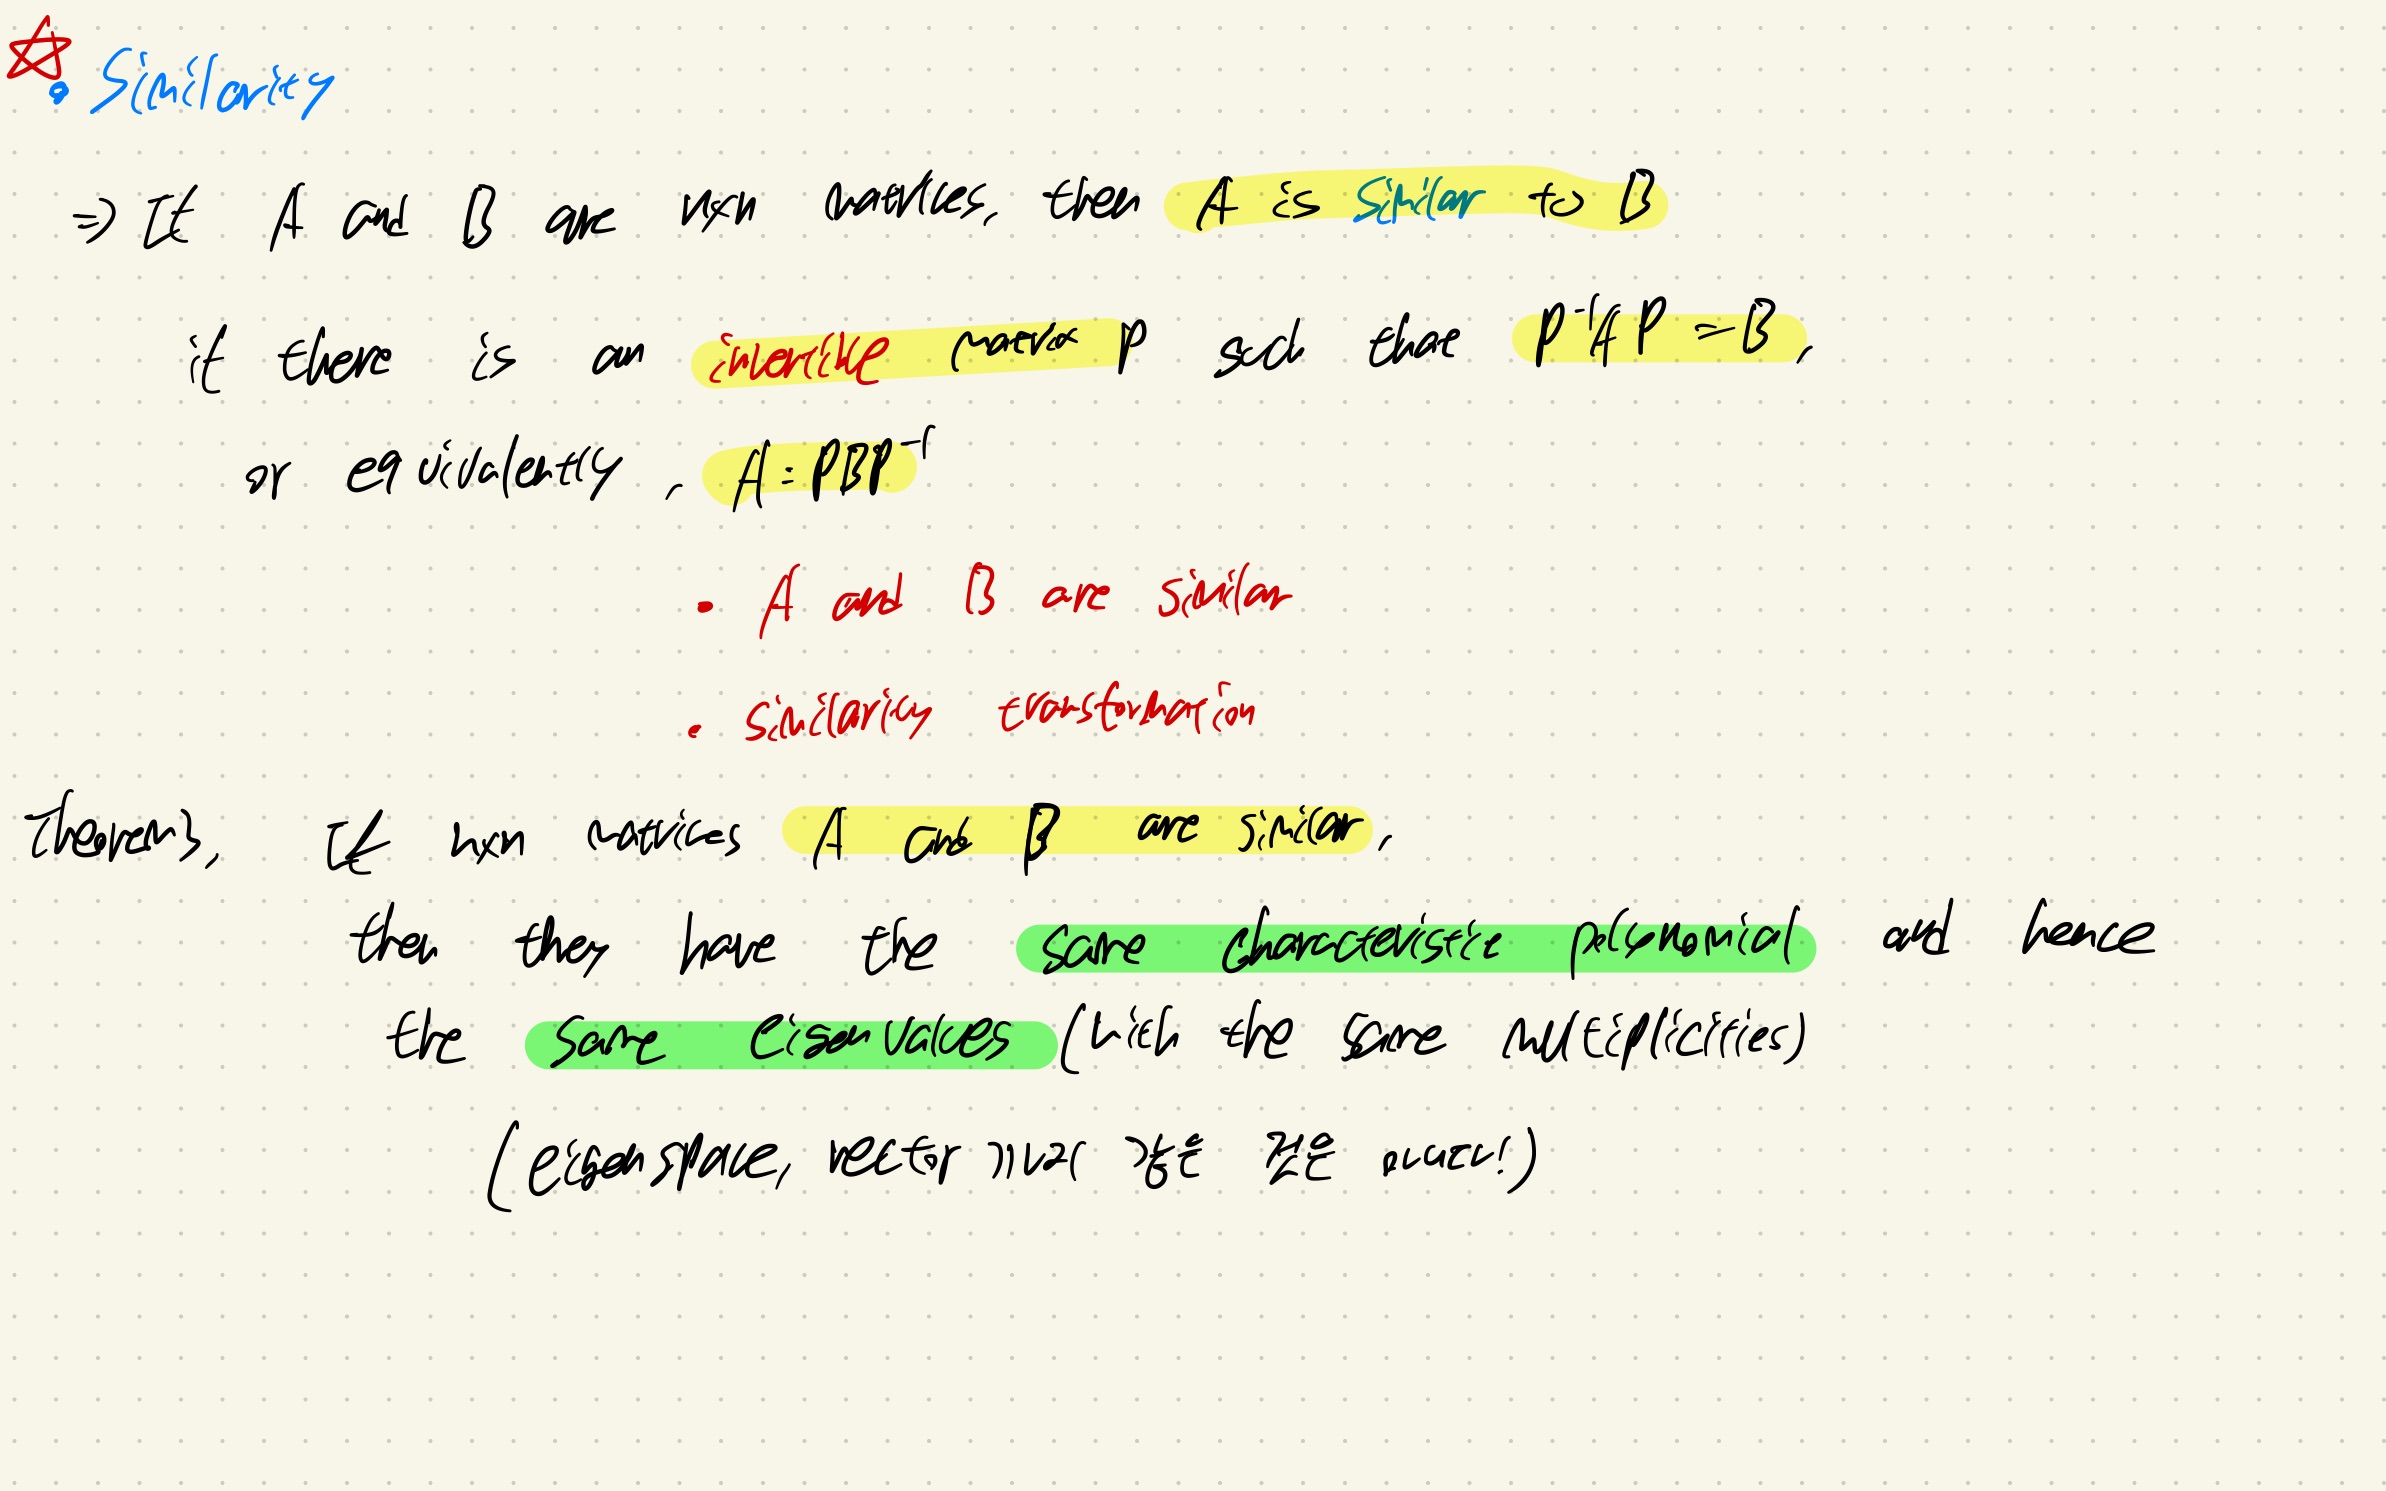 Similarity
⇒ If A and B are n×n matrices, then A is similar to B
if there is an invertible matrix P such that P⁻¹AP = B,
or equivalently, A = PBP⁻¹
• A and B are similar
• similarity transformation
Theorem 3, If n×n matrices A and B are similar,
then they have the same characteristic polynomial and hence
the same eigenvalues (with the same multiplicities)
(eigenspace, vector 같은 것은 아니다!)